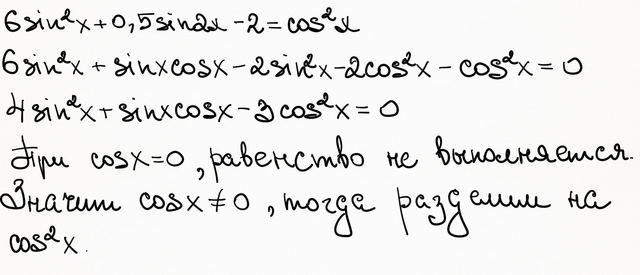 6sin²x+0,5sin2x-2=cos²x
6sin²x+sinxcosx-2sin²x-2cos²x-cos²x=0
4sin²x+sinxcosx-3cos²x=0
При cosx=0, равенство не выполняется.
Значит cosx≠0, тогда разделим на
cos²x.